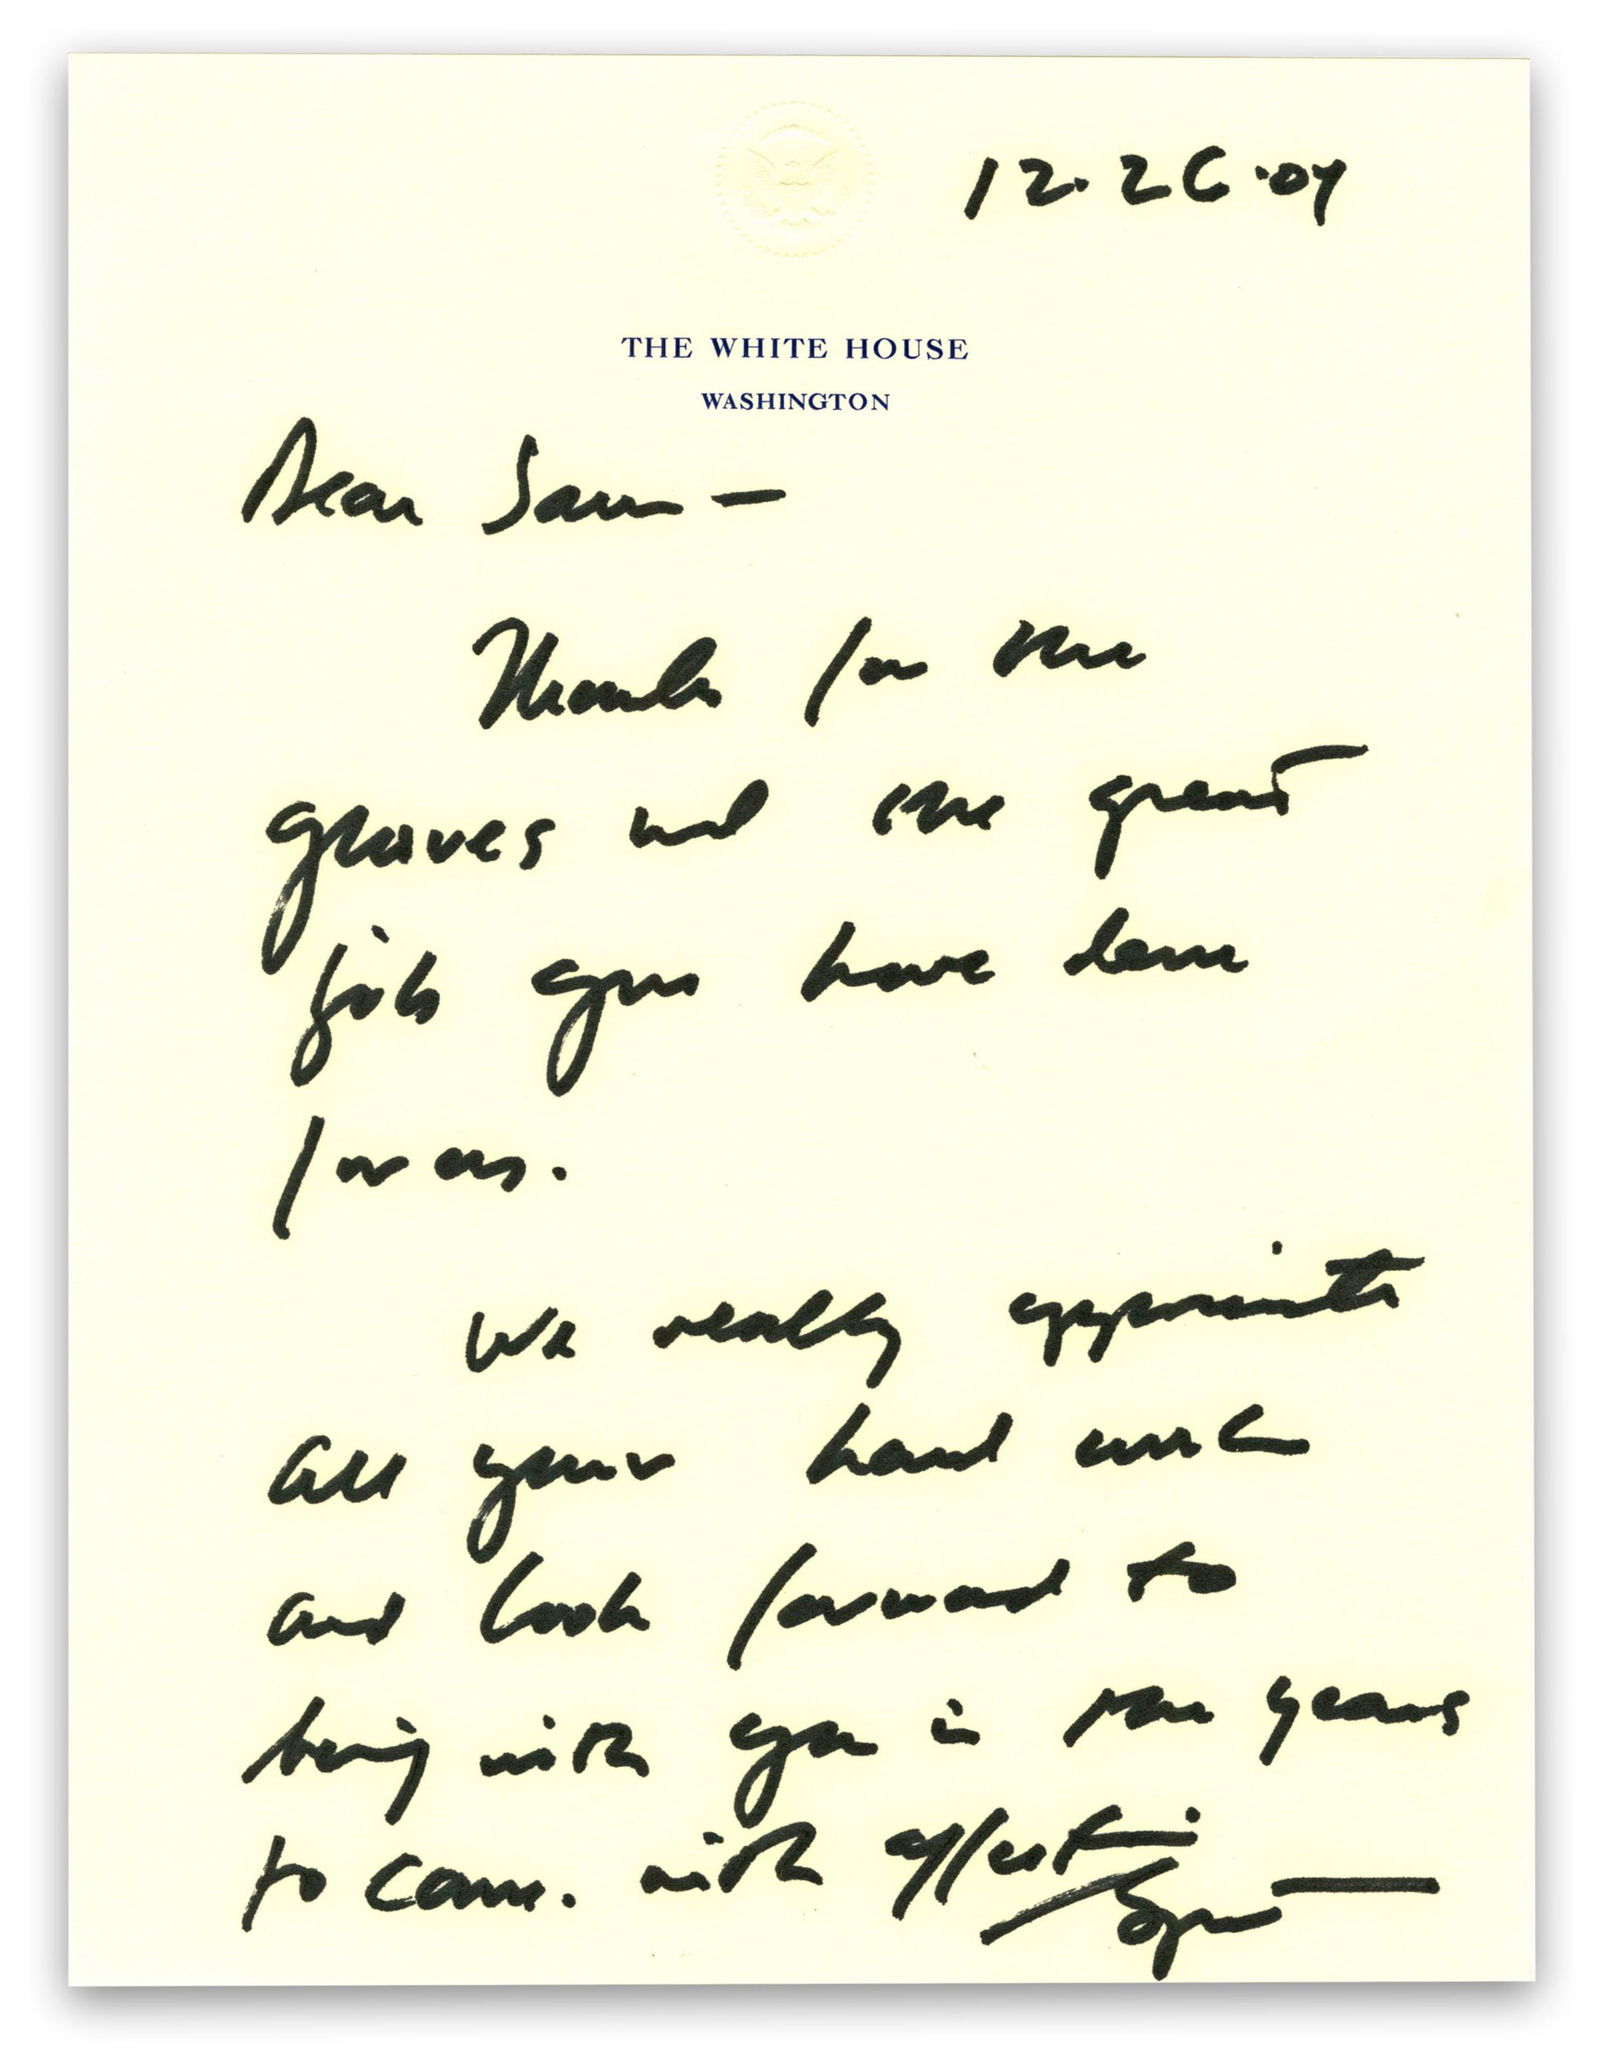 12.26.04
THE WHITE HOUSE
WASHINGTON
Dear Sam —
Thanks for the
gloves and the great
job you have done
for us.
We really appreciate
all your hard work
and look forward to
being with you in the years
to come. with affection